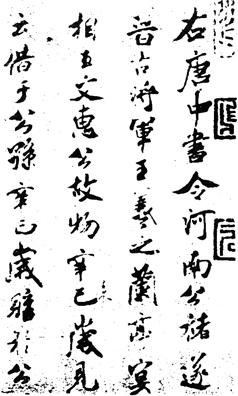 右唐中書令河南公褚遂
晉右將軍王羲之蘭亭宴
相王文惠公故物辛巳歲見
云借于公孫辛巳歲購於公